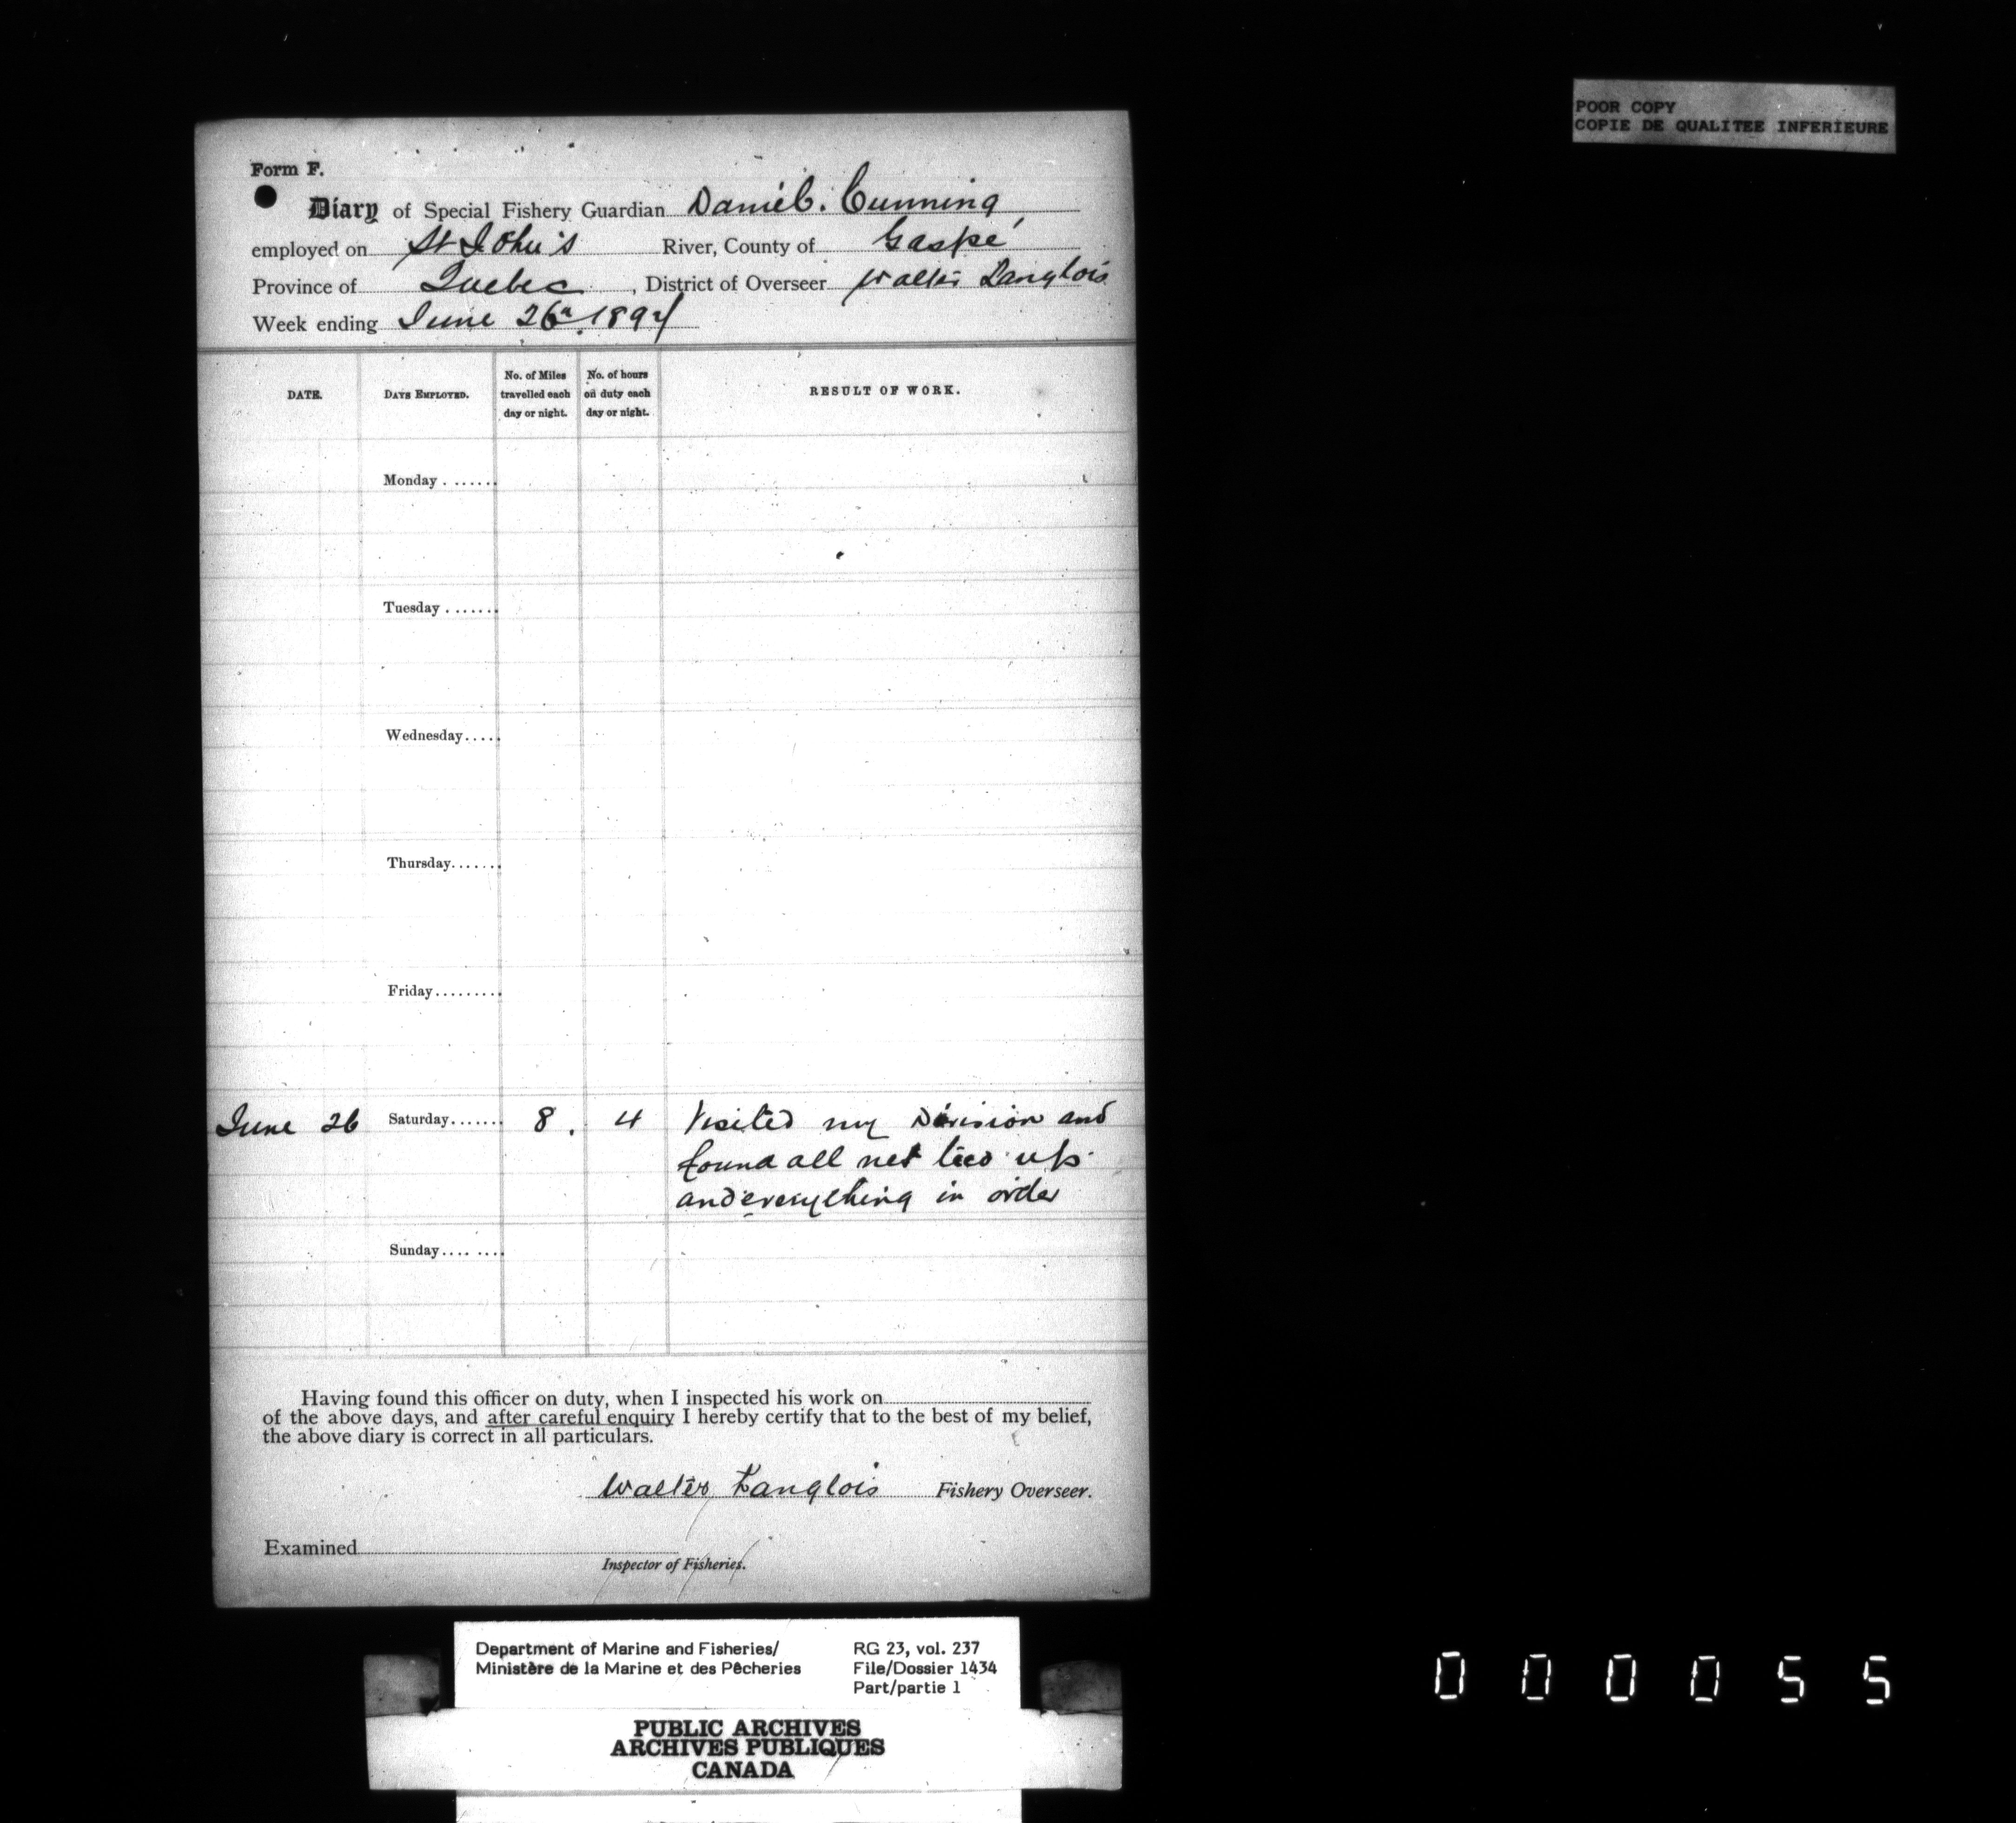 POOR COPY
COPIE DE QUALITEE INFERIEURE
Form F.
Diary of Special Fishery Guardian Daniel. Cunning
employed on St John's River, County of Gaspé
Province of Quebec, District of Overseer Walter Langlois
Week ending June 26th 1897
DATE. DAYS EMPLOYED. No. of Miles travelled each day or night. No. of hours on duty each day or night. RESULT OF WORK.
Monday .......
Tuesday .......
Wednesday.....
Thursday.......
Friday.........
June 26 Saturday....... 8. 4 Visited my Division and
found all net tied up
and everything in order
Sunday.... ....
Having found this officer on duty, when I inspected his work on
of the above days, and after careful enquiry I hereby certify that to the best of my belief,
the above diary is correct in all particulars.
Walter Langlois Fishery Overseer.
Examined
Inspector of Fisheries.
Department of Marine and Fisheries/ RG 23, vol. 237
Ministère de la Marine et des Pêcheries File/Dossier 1434
Part/partie 1
PUBLIC ARCHIVES
ARCHIVES PUBLIQUES
CANADA
000055